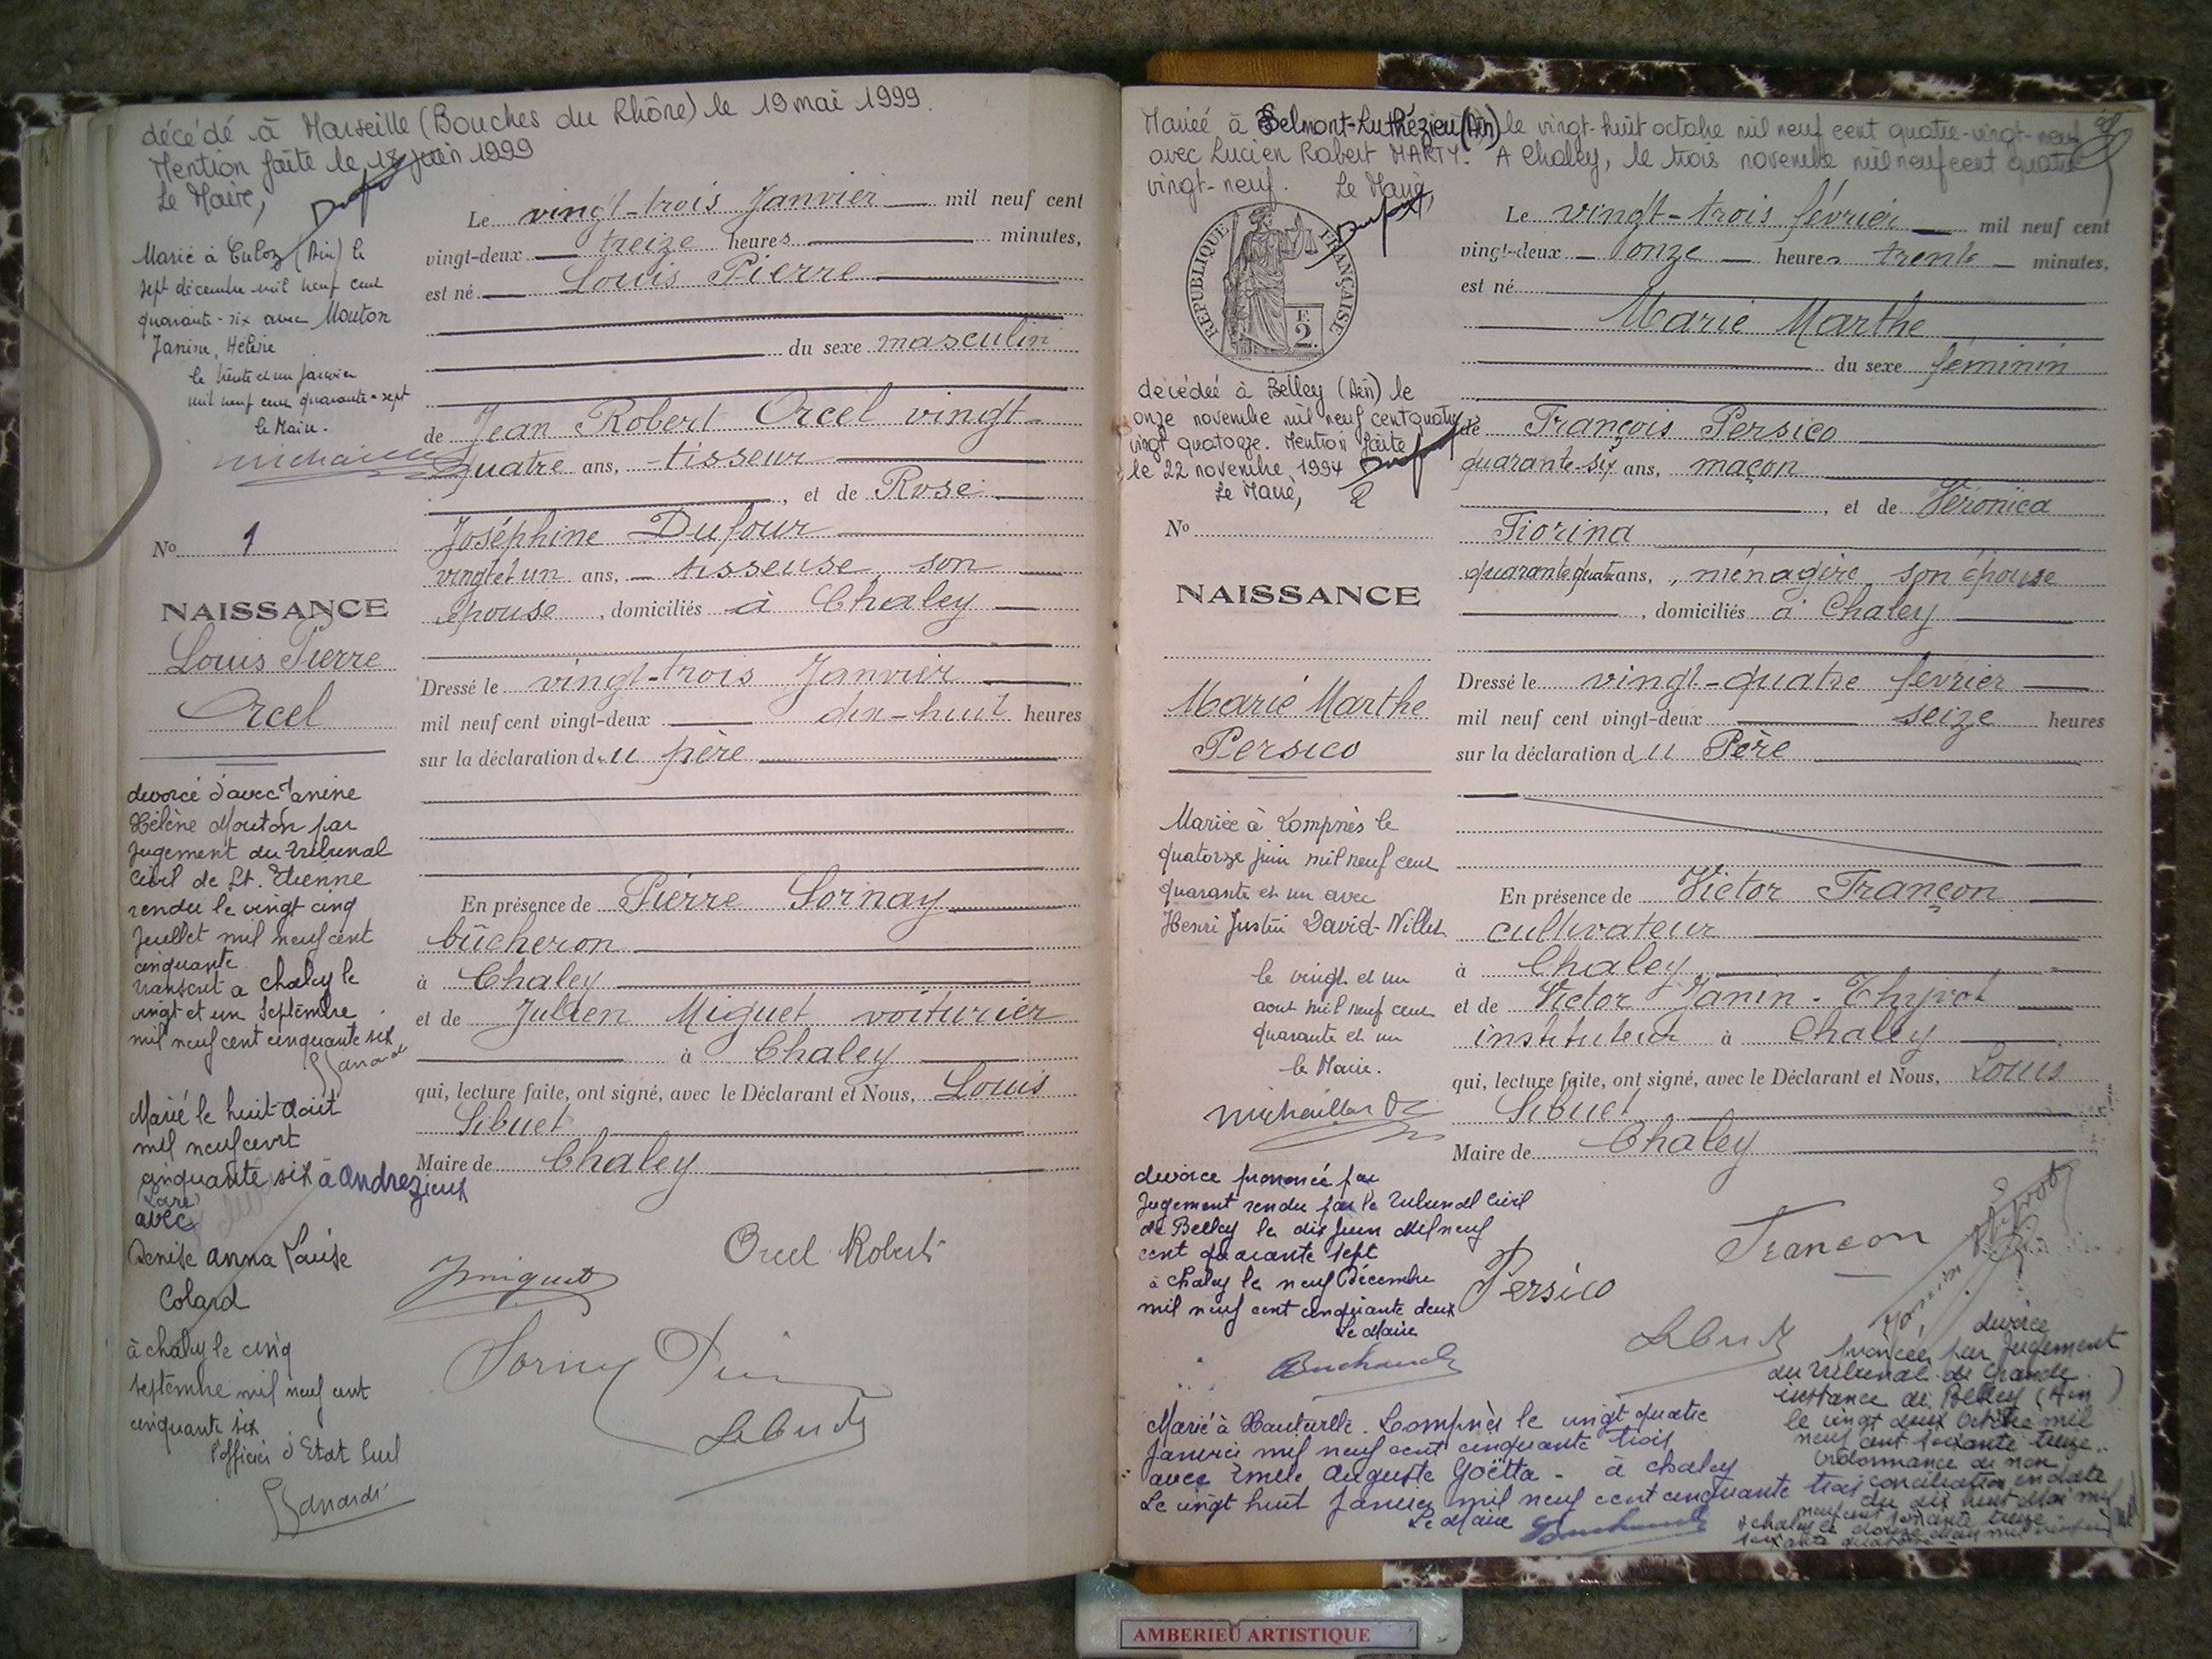 décédé à Marseille (Bouches du Rhône) le 19 mai 1999.
Mention faite le 18 juin 1999
Le Maire,
Marié à Culoz (Ain) le
sept décembre mil neuf cent
quarante-six avec Mouton
Janine, Hélène
le trente et un janvier
mil neuf cent quarante-sept
le Maire.
No 1
NAISSANCE
Louis Pierre
Orcel
divorcé d'avec Janine
Hélène Mouton par
Jugement du Tribunal
Civil de St. Etienne
rendu le vingt cinq
Juillet mil neuf cent
cinquante
transcrit a chaley le
vingt et un Septembre
mil neuf cent cinquante six
Marié le huit Août
mil neuf cent
cinquante six à Andrezieux
Loire
avec
Denise Anna Louise
Colard
à chaley le cinq
septembre mil neuf cent
cinquante six
l'officier d'Etat Civil
Le vingt-trois Janvier mil neuf cent
vingt-deux treize heures minutes,
est né Louis Pierre
du sexe masculin
de Jean Robert Orcel vingt-
quatre ans, tisseur
, et de Rose
Joséphine Dufour
vingt et un ans, tisseuse son
épouse , domiciliés à Chaley
Dressé le vingt-trois Janvier
mil neuf cent vingt-deux dix-huit heures
sur la déclaration du père
En présence de Pierre Sornay
bûcheron
à Chaley
et de Julien Miguet voiturier
à Chaley
qui, lecture faite, ont signé, avec le Déclarant et Nous, Louis
Sibuet
Maire de Chaley
Orcel Robert
Jmiguet
Sornay
Sibuet
Mariée à Belmont-Luthézieu (Ain) le vingt-huit octobre mil neuf cent quatre-vingt-neuf
avec Lucien Robert MARTY. A Chaley, le trois novembre mil neuf cent quatre
vingt-neuf. Le Maire,
REPUBLIQUE FRANÇAISE
F.
2.
décédée à Belley (Ain) le
onze novembre mil neuf cent quatre
vingt quatorze. Mention faite
le 22 novembre 1994
Le Maire,
No
NAISSANCE
Marie Marthe
Persico
Mariée à Lompnès le
quatorze juin mil neuf cent
quarante et un avec
Henri Justin David-Nillet
le vingt et un
aout mil neuf cent
quarante et un
le Maire.
divorce prononcé par
Jugement rendu par le Tribunal Civil
de Belley le dix Juin mil neuf
cent quarante sept
à chaley le neuf Décembre
mil neuf cent cinquante deux
Le Maire
Marié à Hauteville-Lompnès le vingt quatre
Janvier mil neuf cent cinquante trois
avec Emile Auguste Goëtta - à chaley
Le vingt huit Janvier mil neuf cent cinquante trois
Le Maire
Le vingt-trois février mil neuf cent
vingt-deux onze heures trente minutes,
est né
Marie Marthe
du sexe féminin
de François Persico
quarante-six ans, maçon
, et de Véronica
Fiorina
quarante quatre ans, ménagère, son épouse
, domiciliés à Chaley
Dressé le vingt-quatre février
mil neuf cent vingt-deux seize heures
sur la déclaration du Père
En présence de Victor Françon
cultivateur
à Chaley
et de Victor Janin-Thyvot
instituteur à Chaley
qui, lecture faite, ont signé, avec le Déclarant et Nous, Louis
Sibuet
Maire de Chaley
Françon
Persico
Sibuet
divorce
prononcée par Jugement
du Tribunal de Grande
instance de Belley (Ain)
le vingt deux Octobre mil
neuf cent soixante treize.
Ordonnance de non
conciliation en date
du dix huit Mai mil
neuf cent soixante treize
AMBERIEU ARTISTIQUE